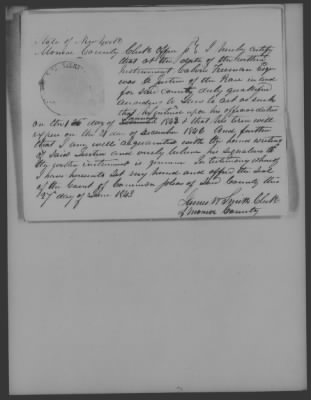 State of New York
Monroe County Clerks Office ss I hereby certify
that at the date of the within
instrument Calvin Freeman Esqr
was a Justice of the Peace in and
for said county duly qualified
According to Law to act as such
that he entered upon his official duties
on the day of 1833 that his term will
expire on the day of December 1846 And further
that I am well acquainted with the hand writing
of said Justice and verily believe his signature to
the within instrument is genuine In testimony whereof
I have hereunto set my hand and affixed the seal
of the Court of Common pleas of said County this
27 day of June 1843
James W Smith Clerk
of Monroe County